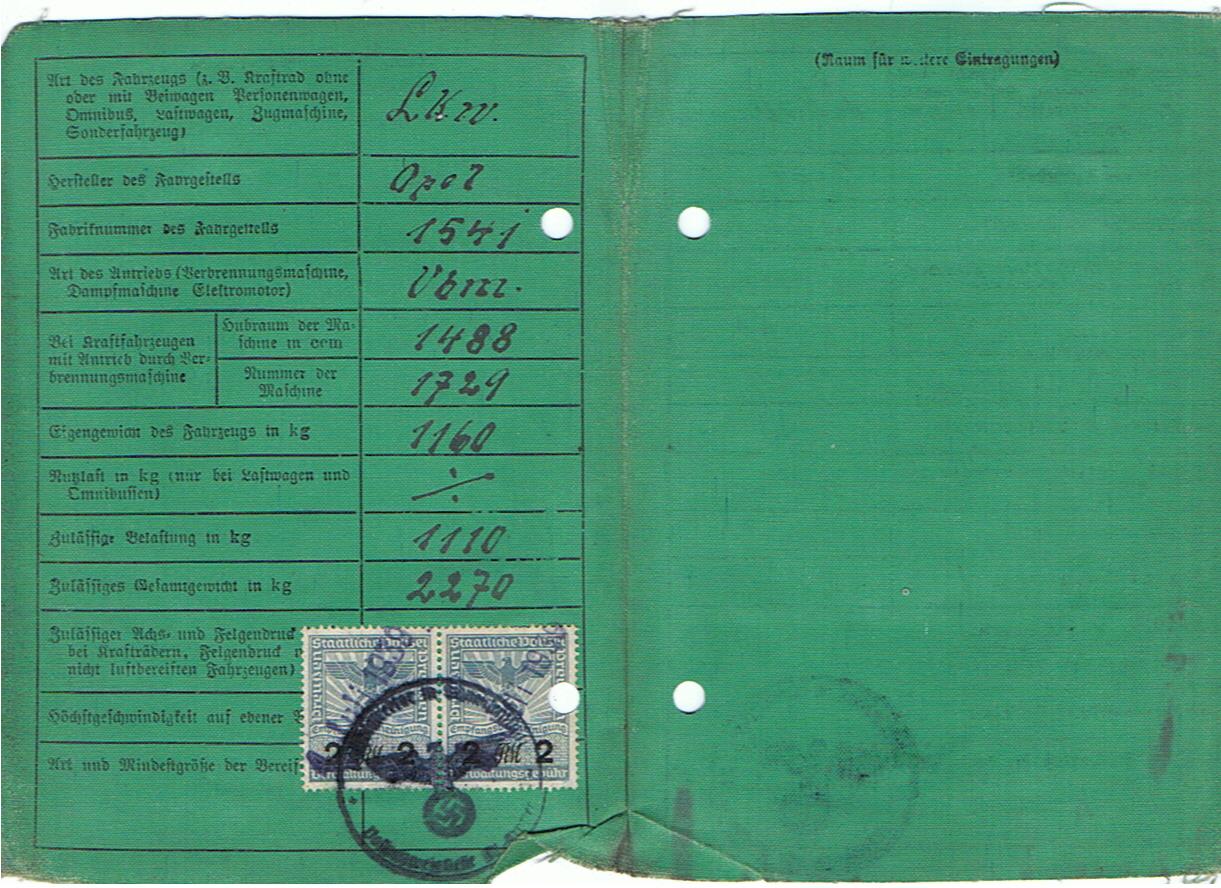 Art des Fahrzeugs (z. B. Kraftrad ohne
oder mit Beiwagen Personenwagen,
Omnibus, Lastwagen, Zugmaschine,
Sonderfahrzeug)
Lkw.
Hersteller des Fahrgestells
Opel
Fabriknummer des Fahrgestells
1541
Art des Antriebs (Verbrennungsmaschine,
Dampfmaschine Elektromotor)
Vbm.
Bei Kraftfahrzeugen
mit Antrieb durch Ver-
brennungsmaschine
Hubraum der Ma-
schine in ccm
1488
Nummer der
Maschine
1729
Eigengewicht des Fahrzeugs in kg
1160
Nutzlast in kg (nur bei Lastwagen und
Omnibussen)
÷
Zulässige Belastung in kg
1110
Zulässiges Gesamtgewicht in kg
2270
Zulässiger Achs- und Felgendruck
bei Krafträdern, Felgendruck
nicht luftbereiften Fahrzeugen)
Höchstgeschwindigkeit auf ebener
Art und Mindestgröße der Bereif
Staatliche Polizei
Staatliche Polizei
Preußen
1939
2 RM 2
2 RM 2
Verwaltungsgebühr
(Raum für weitere Eintragungen)